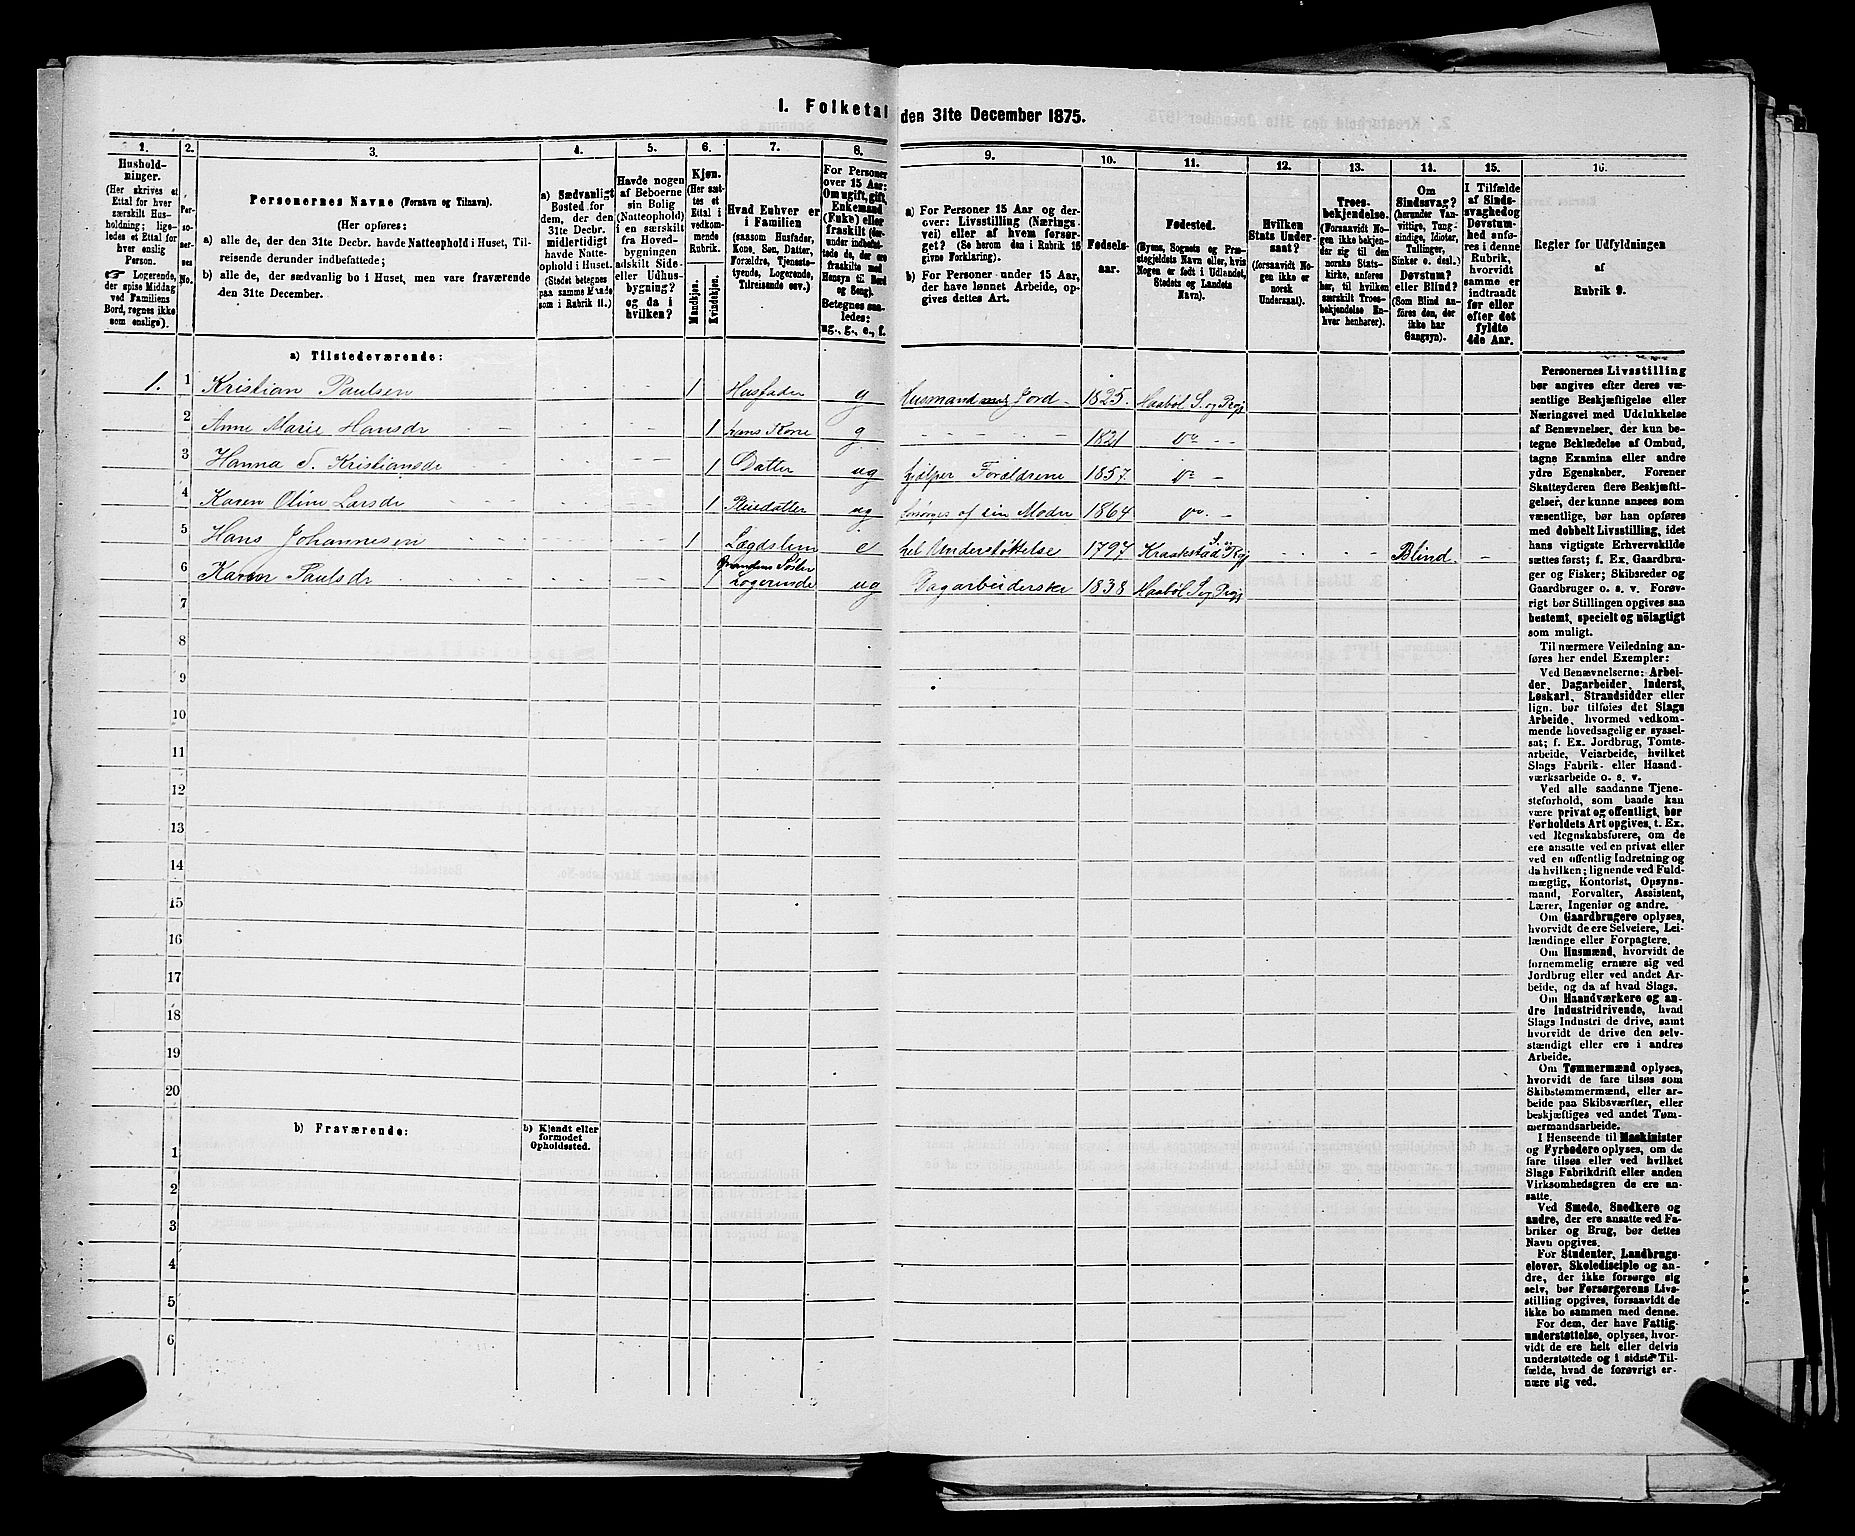 I. Folketal den 31te December 1875.
1. 2. 3. 4. 5. 6. 7. 8. 9. 10. 11. 12. 13. 14. 15. 16.
Hushold-
ninger.
(Her skrives et
Ettal for hver
særskilt Hus-
holdning; lige-
ledes et Ettal for
hver enslig
Person.
☞ Logerende,
der spise Middag
ved Familiens
Bord, regnes ikke
som enslige).
Per-
so-
ner-
nes
No.
Personernes Navne (Fornavn og Tilnavn).
(Her opføres:
a) alle de, der den 31te Decbr. havde Natteophold i Huset, Til-
reisende derunder indbefattede;
b) alle de, der sædvanlig bo i Huset, men vare fraværende
den 31te December.
a) Sædvanligt
Bosted for
dem, der den
31te Decbr.
midlertidigt
havde Natte-
ophold i Huset.
(Stedet betegnes
paa samme Maade
som i Rubrik 11.)
Havde nogen
af Beboerne
sin Bolig
(Natteophold)
i en særskilt
fra Hoved-
bygningen
adskilt Side-
eller Udhus-
bygning?
og da i
hvilken?
Kjøn.
(Her sæt-
tes et
Ettal i
vedkom-
mende
Rubrik.
Mandkjøn.
Kvindekjøn.
Hvad Enhver er
i Familien
(saasom Husfader,
Kone, Søn, Datter,
Forældre, Tjeneste-
tyende, Logerende,
Tilreisende osv.)
For Personer
over 15 Aar:
Om ugift, gift,
Enkemand
(Enke) eller
fraskilt (der-
under indbefat-
tede de, der ere
fraskilte med
Hensyn til Bord
og Seng).
Betegnes saa-
ledes:
ug., g., e., f.
a) For Personer 15 Aar og der-
over: Livsstilling (Nærings-
vei) eller af hvem forsør-
get? (Se herom den i Rubrik 16
givne Forklaring).
b) For Personer under 15 Aar,
der have lønnet Arbeide, op-
gives dettes Art.
Fødsels-
aar.
Fødested.
(Byens, Sognets og Præ-
stegjeldets Navn eller, hvis
Nogen er født i Udlandet,
Stedets og Landets
Navn).
Hvilken
Stats Under-
saat?
(forsaavidt No-
gen ikke er
norsk
Undersaat).
Troes-
bekjendelse.
(Forsaavidt No-
gen ikke bekjen-
der sig til den
norske Stats-
kirke, anføres
her, til hvilken
særskilt Troes-
bekjendelse En-
hver henhører).
Om
Sindssvag?
(herunder Van-
vittige, Tung-
sindige, Idioter,
Tullinger,
Sinker o. desl.)
Døvstum?
eller Blind?
(Som Blind an-
føres den, der
ikke har
Gangsyn).
I Tilfælde
af Sinds-
svaghed og
Døvstum-
hed anfø-
res i denne
Rubrik,
hvorvidt
samme er
indtraadt
før eller
efter det
fyldte
4de Aar.
Regler for Udfyldningen
af
Rubrik 9.
a) Tilstedeværende:
1. 1 Kristian Paulsen 1 Husfader g Husmand med Jord 1825. Haabøl S. og Prgj
2 Anne Marie Hansdr 1 hans Kone g 1821 do
3 Hanna S. Kristiansdr 1 Datter ug hjelper Forældrene 1857. do
4 Karen Oline Larsdr 1 Pleiedatter ug forsørges af sin Moder 1864 do.
5 Hans Johannesen 1 Lægdslem e hel Understøttelse 1797 Kraakstad S. og Prgj Blind.
6 Karen Paulsdr 1 Søster Logerende ug Dagarbeiderske 1838 Haabøl S. og Prgj
7
8
9
10
11
12
13
14
15
16
17
18
19
20
b) Fraværende:
b) Kjendt eller
formodet
Opholdssted.
1
2
3
4
5
6
Personernes Livsstilling
bør angives efter deres væ-
sentlige Beskjæftigelse eller
Næringsvei med Udelukkelse
af Benævnelser, der kun be-
tegne Beklædelse af Ombud,
tagne Examina eller andre
ydre Egenskaber. Forener
Skatteyderen flere Beskjæfti-
gelser, der kunne ansees som
væsentlige, bør han opføres
med dobbelt Livsstilling, idet
hans vigtigste Erhvervskilde
sættes først; f. Ex. Gaardbru-
ger og Fisker; Skibsreder og
Gaardbruger o. s. v. Forøv-
rigt bør Stillingen opgives saa
bestemt, specielt og nöiagtigt
som muligt.
Til nærmere Veiledning an-
føres her endel Exempler:
Ved Benævnelserne: Arbei-
der, Dagarbeider, Inderst,
Løskarl, Strandsidder eller
lign. bør tilføies det Slags
Arbeide, hvormed vedkom-
mende hovedsagelig er syssel-
sat; f. Ex. Jordbrug, Tomte-
arbeide, Veiarbeide, hvilket
Slags Fabrik- eller Haand-
værksarbeide o. s. v.
Ved alle saadanne Tjene-
steforhold, som baade kan
være privat og offentligt, bør
Forholdets Art opgives, t. Ex.
ved Regnskabsførere, om de
ere ansatte ved en privat eller
ved en offentlig Indretning og
da hvilken; lignende ved Fuld-
mægtig, Kontorist, Opsyns-
mand, Forvalter, Assistent,
Lærer, Ingeniør og andre.
Om Gaardbrugere oplyses,
hvorvidt de ere Selveiere, Lei-
lændinge eller Forpagtere.
Om Husmænd, hvorvidt de
fornemmelig ernære sig ved
Jordbrug eller ved andet Ar-
beide, og da af hvad Slags.
Om Haandværkere og an-
dre Industridrivende, hvad
Slags Industri de drive, samt
hvorvidt de drive den selv-
stændigt eller ere i andres
Arbeide.
Om Tømmermænd oplyses,
hvorvidt de fare tilsøs som
Skibstømmermænd, eller ar-
beide paa Skibsværfter, eller
beskjæftiges ved andet Tøm-
mermandsarbeide.
I Henseende til Maskinister
og Fyrbødere oplyses, om de
fare tilsøs eller ved hvilket
Slags Fabrikdrift eller anden
Virksomhedsgren de ere an-
satte.
Ved Smede, Snedkere og
andre, der ere ansatte ved Fa-
briker og Brug, bør dettes
Navn opgives.
For Studenter, Landbrugs-
elever, Skoledisciple og an-
dre, der ikke forsørge sig
selv, bør Forsørgerens Livs-
stilling opgives, forsaavidt de
ikke bo sammen med denne.
For dem, der have Fattig-
understøttelse, oplyses, hvor-
vidt de ere helt eller delvis
understøttede og i sidste Til-
fælde, hvad de forøvrigt er-
nære sig ved.